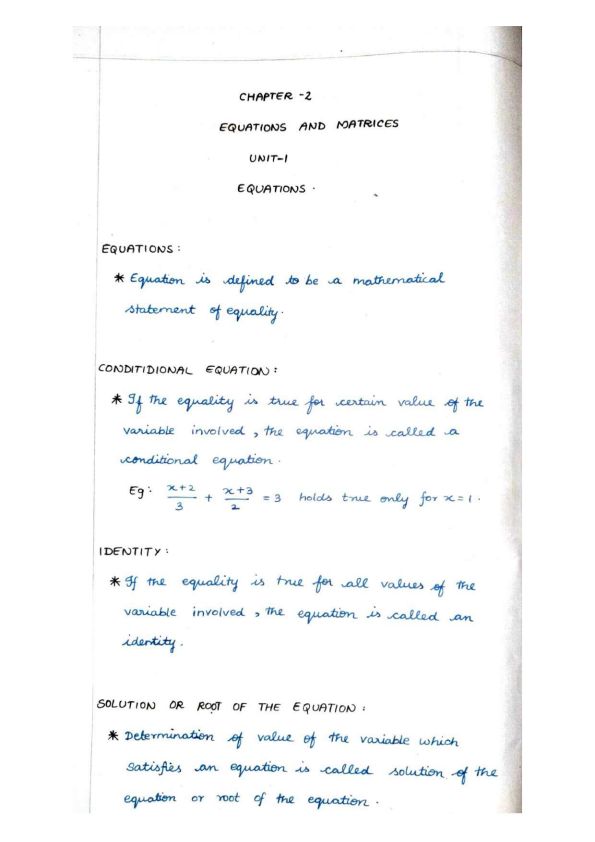 CHAPTER -2
EQUATIONS AND MATRICES
UNIT-1
EQUATIONS.
EQUATIONS:
* Equation is defined to be a mathematical
statement of equality.
CONDITIDIONAL EQUATION:
* If the equality is true for certain value of the
variable involved, the equation is called a
conditional equation.
Eg: x+2/3 + x+3/2 = 3 holds true only for x=1.
IDENTITY:
* If the equality is true for all values of the
variable involved, the equation is called an
identity.
SOLUTION OR ROOT OF THE EQUATION:
* Determination of value of the variable which
satisfies an equation is called solution of the
equation or root of the equation.